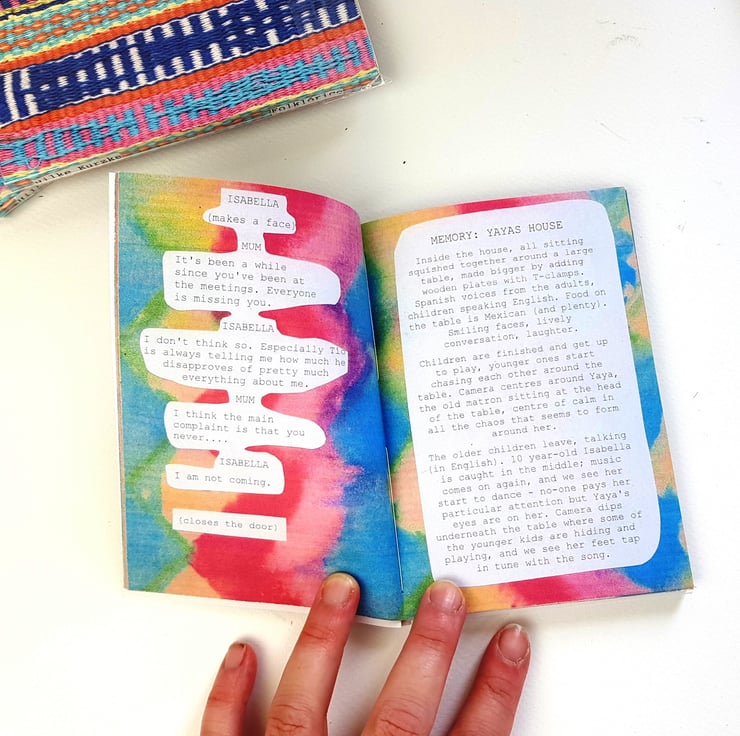 Folklórico
Wilke Kurzke
ISABELLA
(makes a face)
MUM
It's been a while
since you've been at
the meetings. Everyone
is missing you.
ISABELLA
I don't think so. Especially Tio
is always telling me how much he
disapproves of pretty much
everything about me.
MUM
I think the main
complaint is that you
never....
ISABELLA
I am not coming.
(closes the door)
MEMORY: YAYAS HOUSE
Inside the house, all sitting
squished together around a large
table, made bigger by adding
wooden plates with T-clamps.
Spanish voices from the adults,
children speaking English. Food on
the table is Mexican (and plenty).
Smiling faces, lively
conversation, laughter.
Children are finished and get up
to play, younger ones start
chasing each other around the
table. Camera centres around Yaya,
the old matron sitting at the head
of the table, centre of calm in
all the chaos that seems to form
around her.
The older children leave, talking
(in English). 10 year-old Isabella
is caught in the middle; music
comes on again, and we see her
start to dance - no-one pays her
particular attention but Yaya's
eyes are on her. Camera dips
underneath the table where some of
the younger kids are hiding and
playing, and we see her feet tap
in tune with the song.